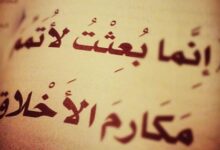 إِنَّما بُعِثْتُ لأُتَمِّ
مَكارِمَ الأَخْلاقِ